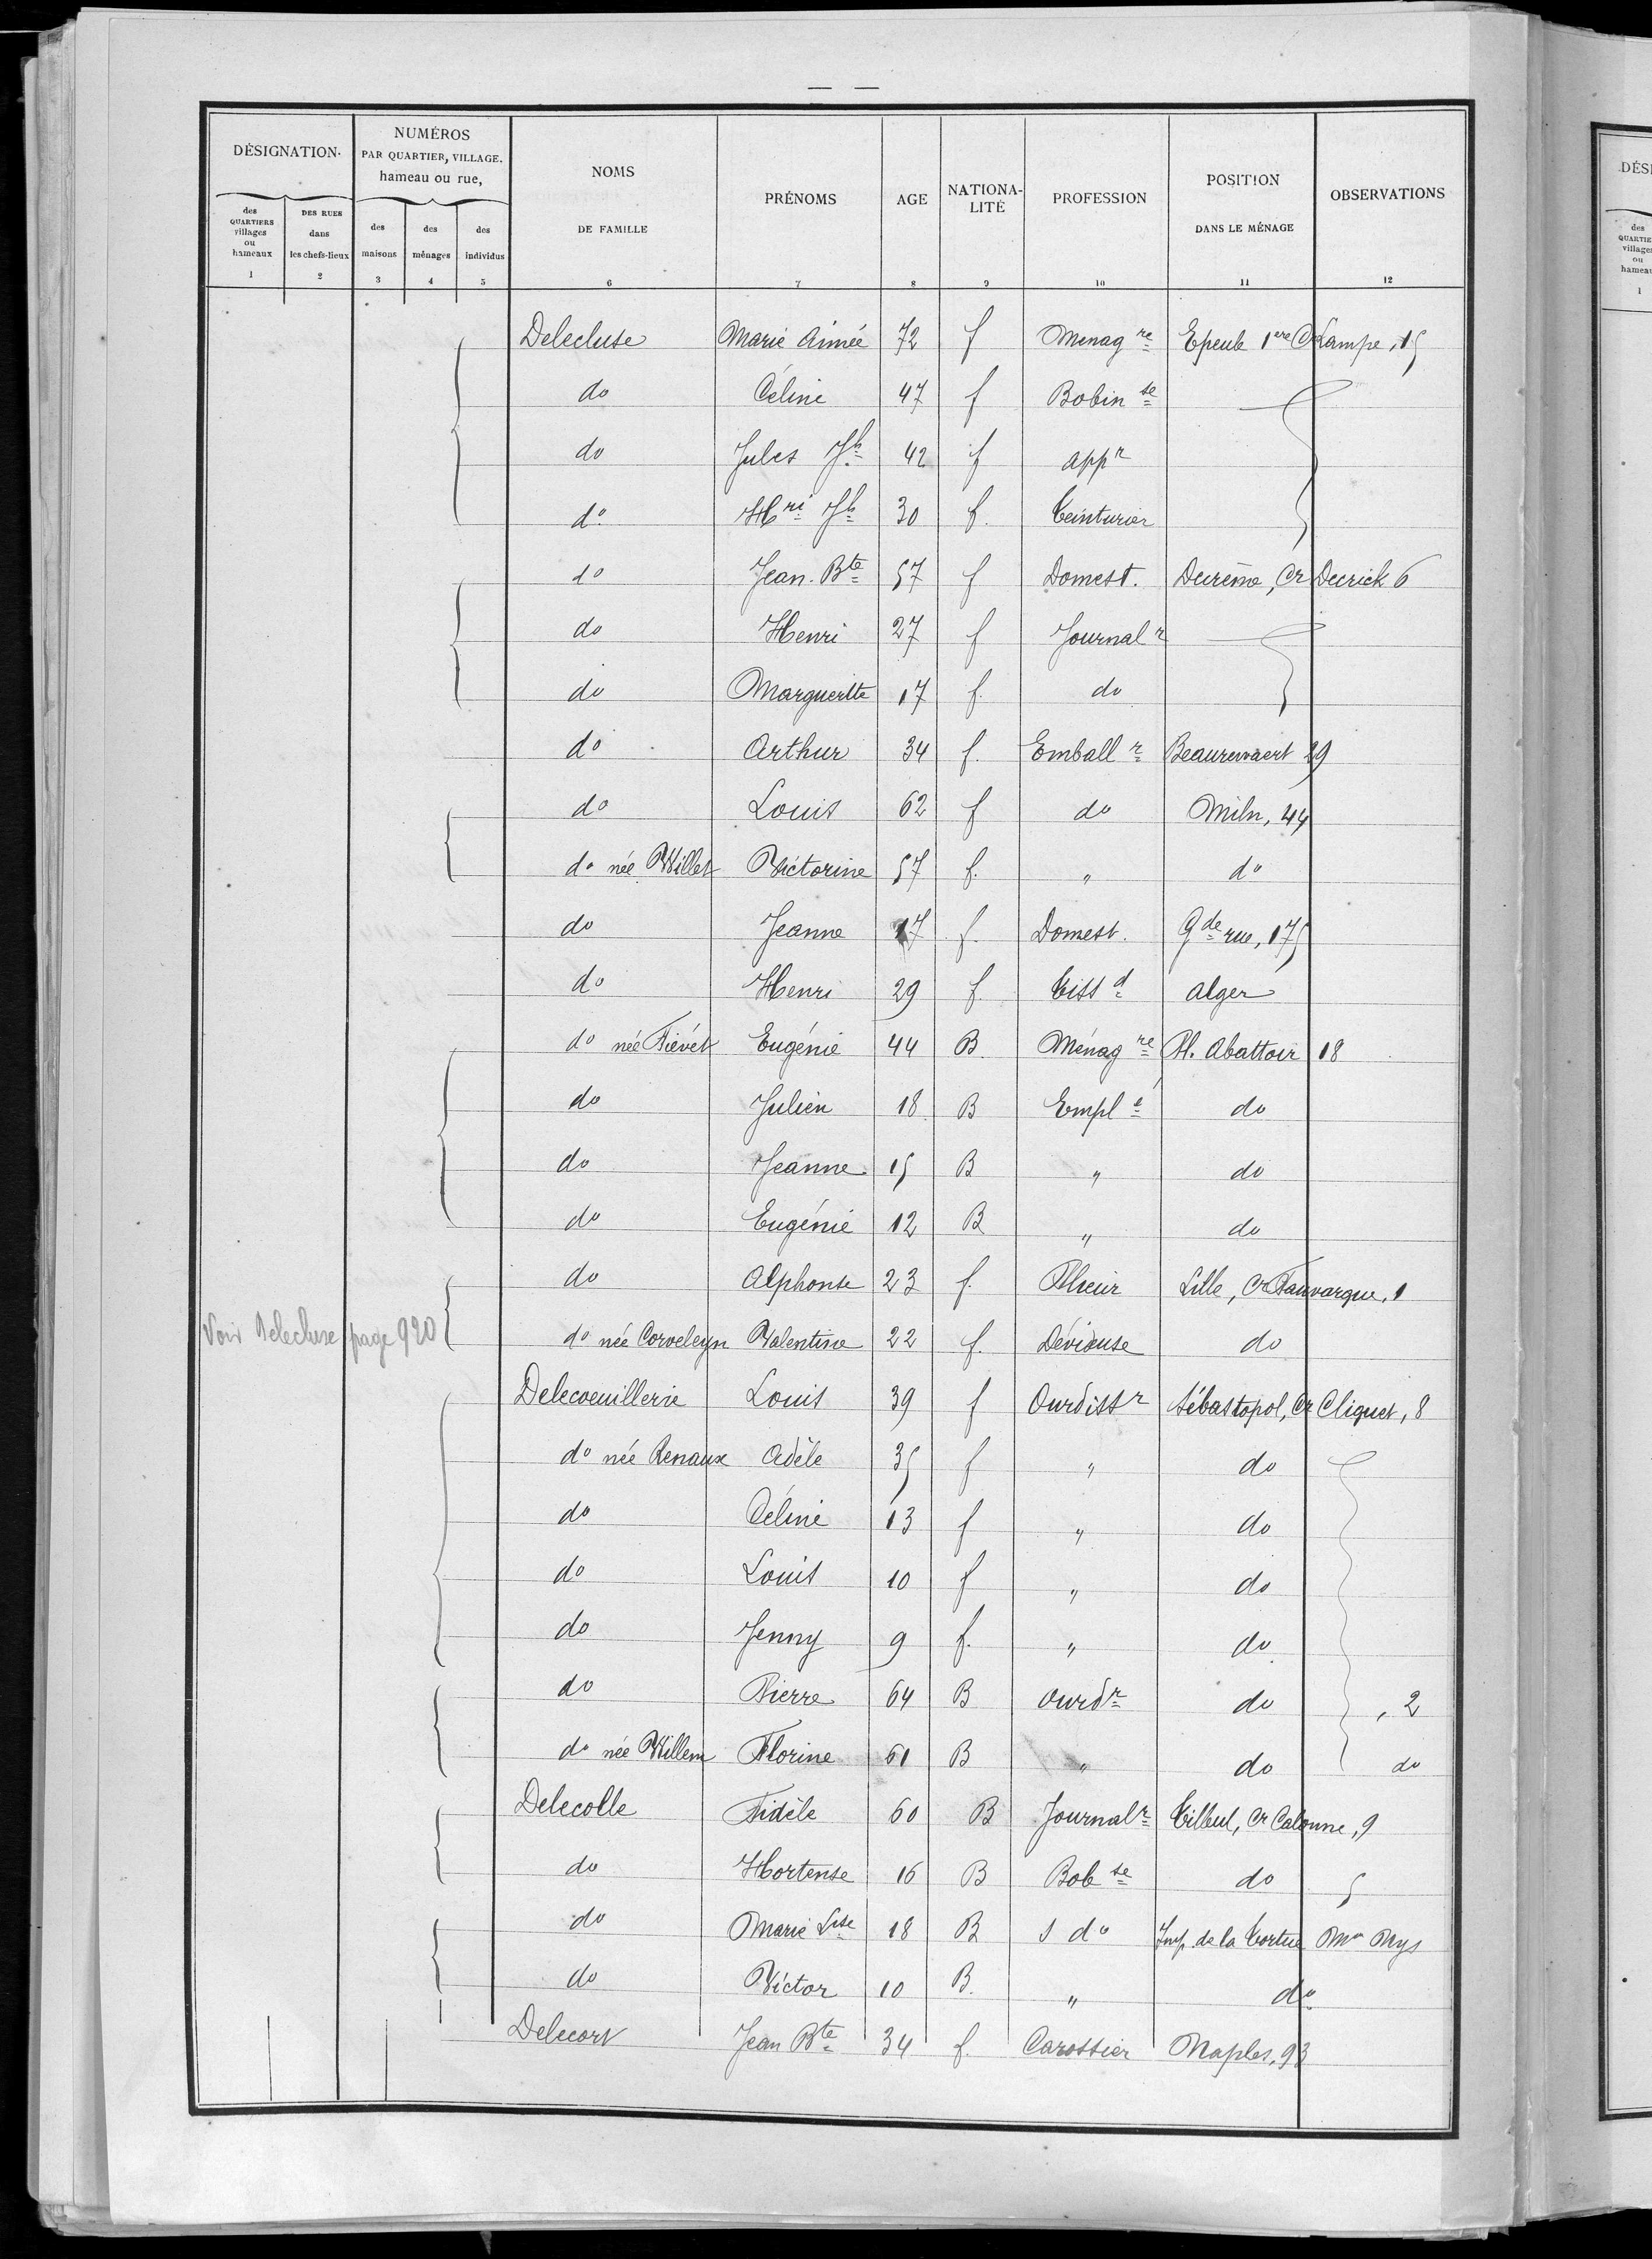 DÉSIGNATION.
NUMÉROS
PAR QUARTIER, VILLAGE.
hameau ou rue,
NOMS
DE FAMILLE
PRÉNOMS
AGE
NATIONA-
LITÉ
PROFESSION
POSITION
DANS LE MÉNAGE
OBSERVATIONS
des QUARTIERS villages ou hameaux
DES RUES dans les chefs-lieux
des maisons
des ménages
des individus
1 2 3 4 5 6 7 8 9 10 11 12
Delecluse Marie Aimée 72 f Menag re Epeule 1ere Cr Lampe, 15
do Céline 47 f Bobin se
do Jules Jh 42 f appr
do Hri Jh 30 f. Teinturier
do Jean-Bte 57 f Domest. Decrême, Cr Decrick 6
do Henri 27 f Journal r
do Marguerite 17 f. do
do Arthur 34 f. Emball r Beaurewaert 29
do Louis 62 f do Miln, 44
do née Willet Victorine 57 f. " do
do Jeanne 17 f. Domest. Gde rue, 175
do Henri 29 f. Tiss d Alger
do née Fiévet Eugénie 44 B. Ménag re Pl. Abattoir 18
do Julien 18 B Empl é do
do Jeanne 15 B " do
do Eugénie 12 B " do
do Alphonse 23 f. Plieur Lille, Cr Fauvarque, 1
Voir Delecluse page 920
do née Corveleyn Valentine 22 f. Dévideuse do
Delecoeuillerie Louis 39 f Ourdissr Sébastopol, Cr Cliquet, 8
do née Renaux Adèle 35 f " do
do Céline 13 f " do
do Louis 10 f " do
do Jenny 9 f. " do
do Pierre 64 B Ourdr do , 2
do née Willem Florine 61 B " do do
Delecolle Fidèle 60 B Journalr Tilleul, Cr Calonne, 9
do Hortense 16 B Bob se do
do Marie Lse 18 B S do Imp. de la Tortue Mon Mys
do Victor 10 B. " do
Delecort Jean Bte 34 f. Carossier Naples, 93
DÉSI
des
QUARTIE
villages
ou
hameau
1